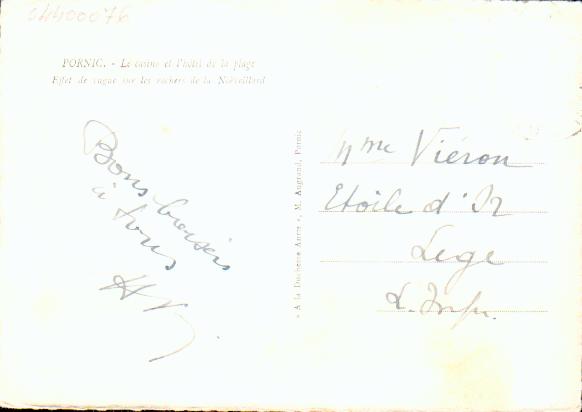 04400076
PORNIC. - Le casino et l'hôtel de la plage
Effet de vague sur les rochers de la Noëveillard
Bons baisers
à tous
« A la Duchesse Anne », M. Augrand, Pornic
Mme Viéron
Etoile d'Or
Legé
L. Infre.